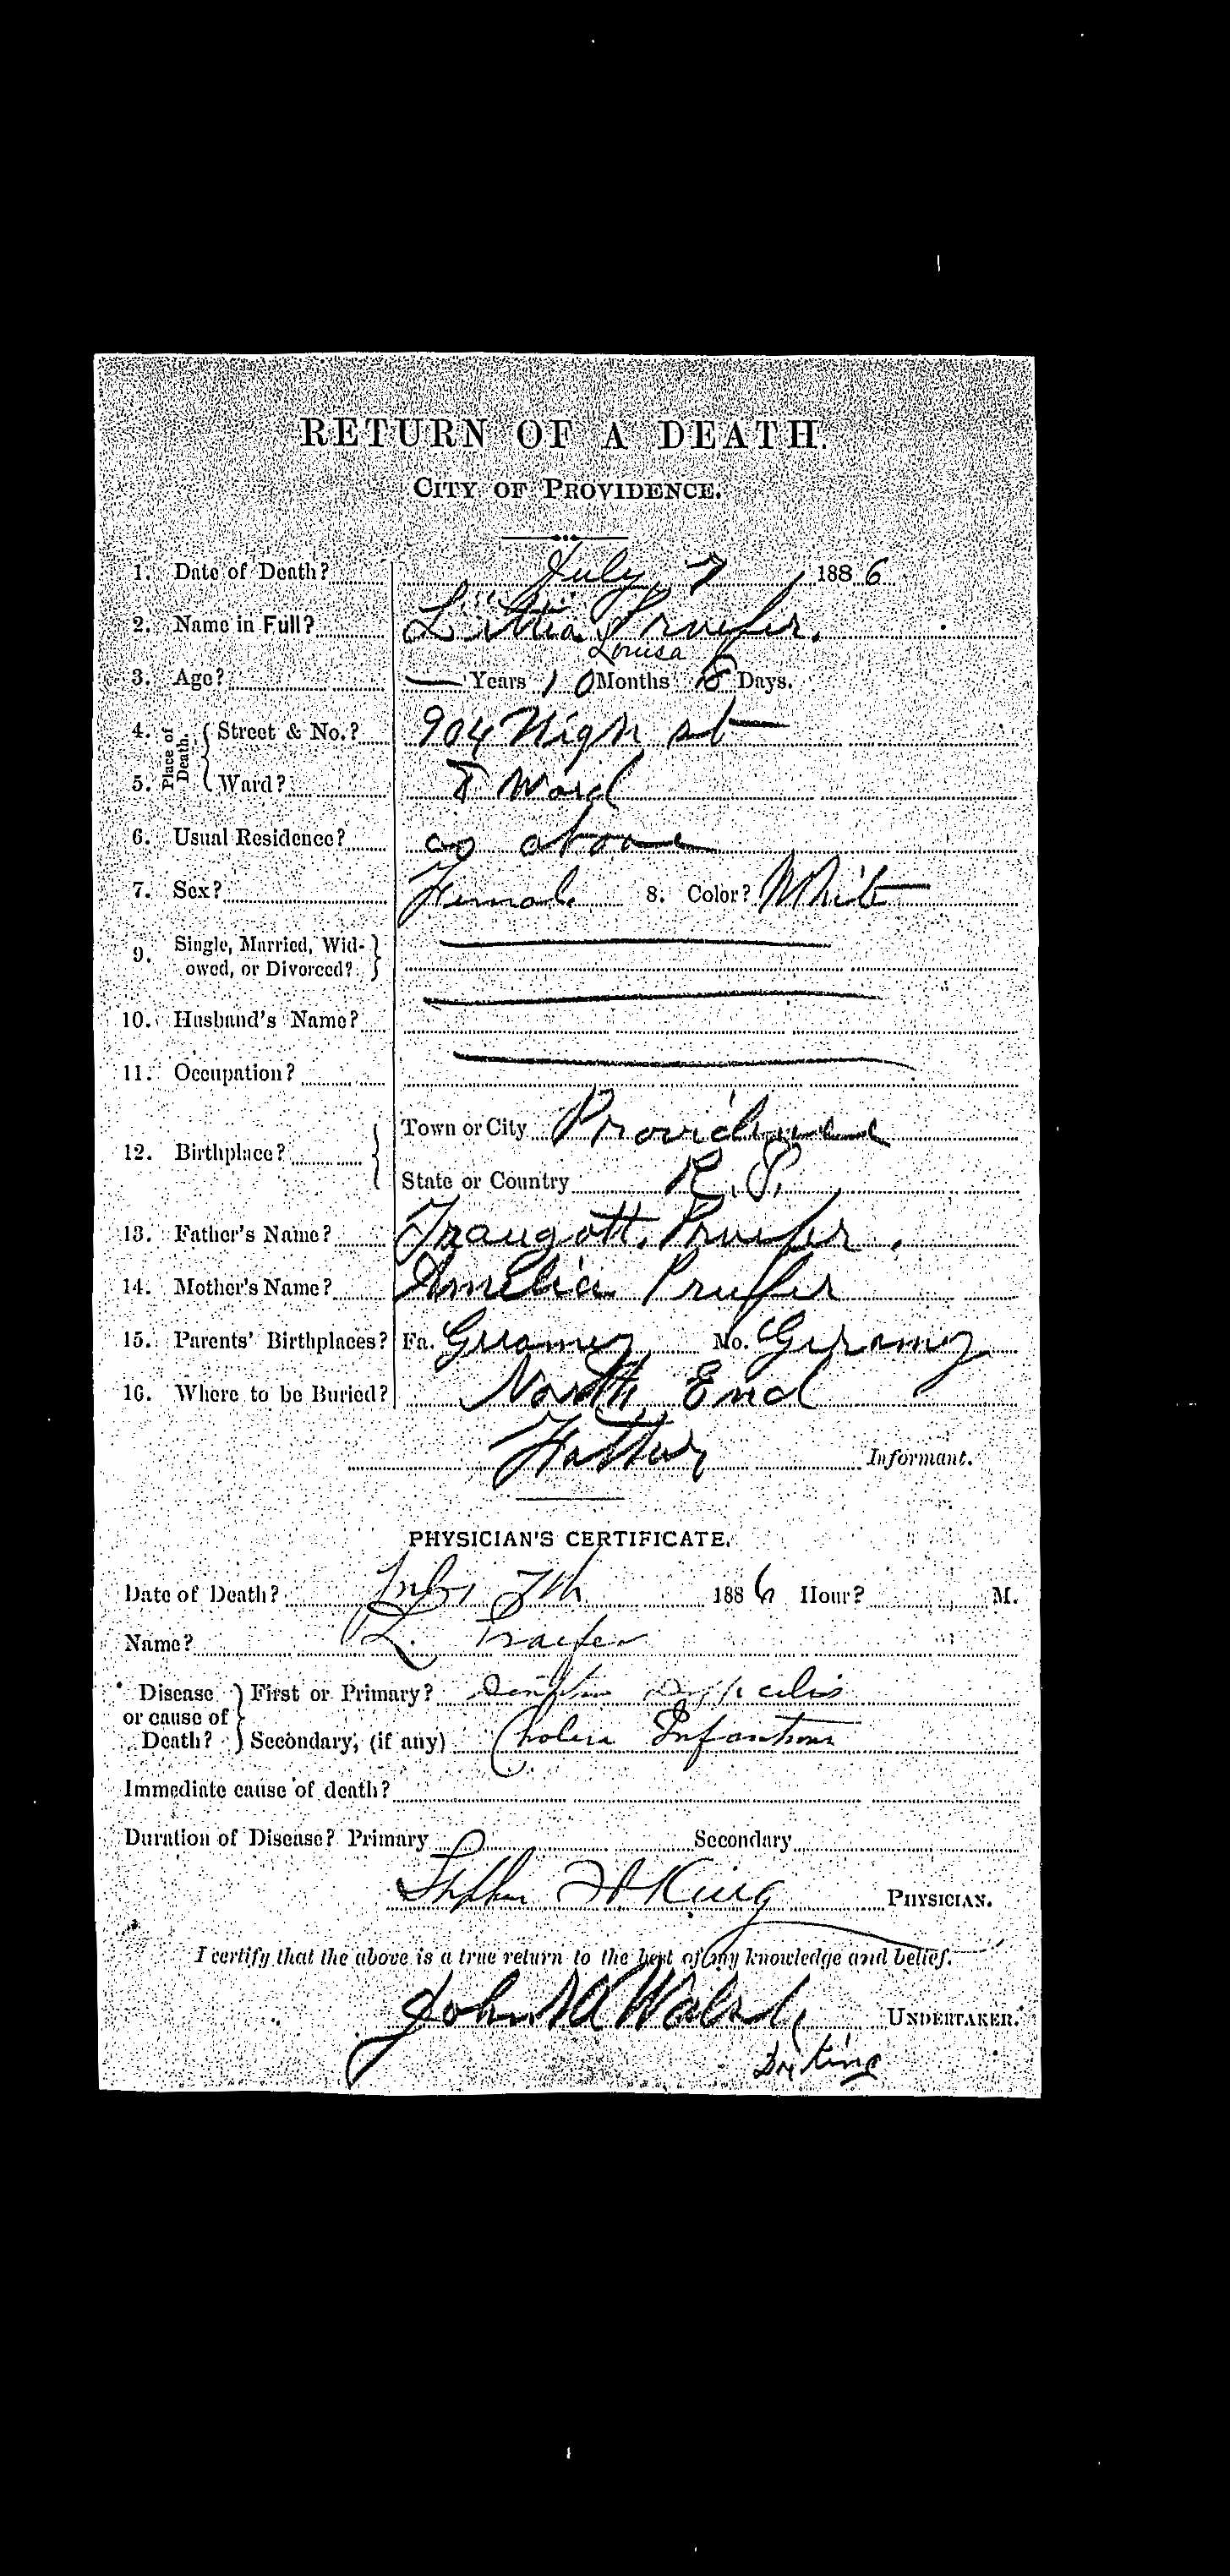 RETURN OF A DEATH.
CITY OF PROVIDENCE.
1. Date of Death? July 7, 1886
2. Name in Full? Littia Pruefer.
Louisa
3. Age? — Years 10 Months 18 Days.
4. Place of Death. Street & No.? 904 High st
5. Ward? 8 Ward
6. Usual Residence? as above
7. Sex? Female 8. Color? White
9. Single, Married, Wid-
owed, or Divorced?
10. Husband's Name?
11. Occupation?
12. Birthplace? Town or City Providence
State or Country R.I.
13. Father's Name? Traugott. Pruefer.
14. Mother's Name? Amelia Prufer
15. Parents' Birthplaces? Fa. Germany Mo. Germany
16. Where to be Buried? North End
Father Informant.
PHYSICIAN'S CERTIFICATE.
Date of Death? July 7th 1886 Hour? M.
Name? L. Praefer
Disease or cause of Death? First or Primary?
Secondary, (if any) Cholera Infantum
Immediate cause of death?
Duration of Disease? Primary Secondary
Stephen King PHYSICIAN.
I certify that the above is a true return to the best of my knowledge and belief.
John A Walsh UNDERTAKER.
Dr King